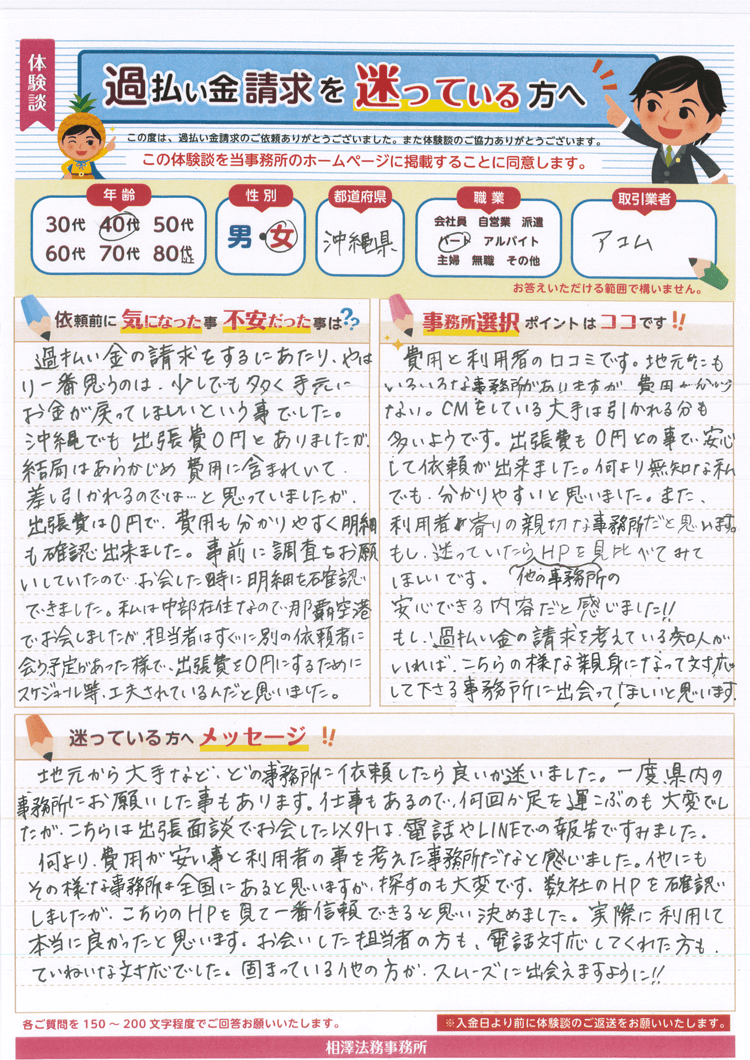 体験談
過払い金請求を迷っている方へ
この度は、過払い金請求のご依頼ありがとうございました。また体験談のご協力ありがとうございます。
この体験談を当事務所のホームページに掲載することに同意します。
年齢
30代 40代 50代
60代 70代 80代以上
性別
男・女
都道府県
沖縄県
職業
会社員 自営業 派遣
パート アルバイト
主婦 無職 その他
取引業者
アコム
お答えいただける範囲で構いません。
依頼前に気になった事 不安だった事は??
過払い金の請求をするにあたり、やは
り一番思うのは、少しでも多く手元に
お金が戻ってほしいという事でした。
沖縄でも出張費0円とありましたが、
結局はあらかじめ費用に含まれいて、
差し引かれるのでは…と思っていましたが、
出張費は0円で、費用も分かりやすく明細
も確認出来ました。事前に調査をお願
いしていたので、お会した時に明細も確認
できました。私は中部在住なので那覇空港
でお会しましたが、担当者はすぐに別の依頼者に
会う予定があった様で、出張費を0円にするために
スケジュール等、工夫されているんだと思いました。
事務所選択ポイントはココです!!
費用と利用者の口コミです。地元にも
いろいろな事務所がありますが、費用が分から
ない。CMをしている大手は引かれる分も
多いようです。出張費も0円との事で、安心
して依頼が出来ました。何より無知な私
でも、分かりやすいと思いました。また、
利用者寄りの親切な事務所だと思います。
もし、迷っていたらHPを見比べてみて
ほしいです。 他の事務所の
安心できる内容だと感じました!!
もし、過払い金の請求を考えている知人が
いれば、こちらの様な親身になって対応
して下さる事務所に出会ってほしいと思います。
迷っている方へメッセージ!!
地元から大手など、どの事務所に依頼したら良いか迷いました。一度県内の
事務所にお願いした事もあります。仕事もあるので、何回か足を運ぶのも大変でし
たが、こちらは出張面談でお会した以外は、電話やLINEでの報告ですみました。
何より、費用が安い事と利用者の事を考えた事務所だなと感いました。他にも
その様な事務所は全国にあると思いますが、探すのも大変です。数社のHPを確認い
しましたが、こちらのHPを見て一番信頼できると思い決めました。実際に利用して
本当に良かったと思います。お会いした担当者の方も、電話対応してくれた方も、
ていねいな対応でした。困まっている他の方が、スムーズに出会えますように!!
各ご質問を150～200文字程度でご回答お願いいたします。
※入金日より前に体験談のご返送をお願いいたします。
相澤法務事務所